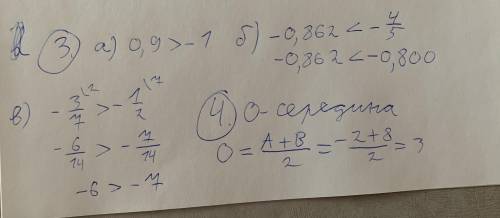 3. а) 0,9 > -1 б) -0,862 < -4/5
-0,862 < -0,800
в) -3/7 \2 > -1/2 \7
-6/14 > -7/14
-6 > -7
4. O - середина
O = A+B/2 = -2+8/2 = 3